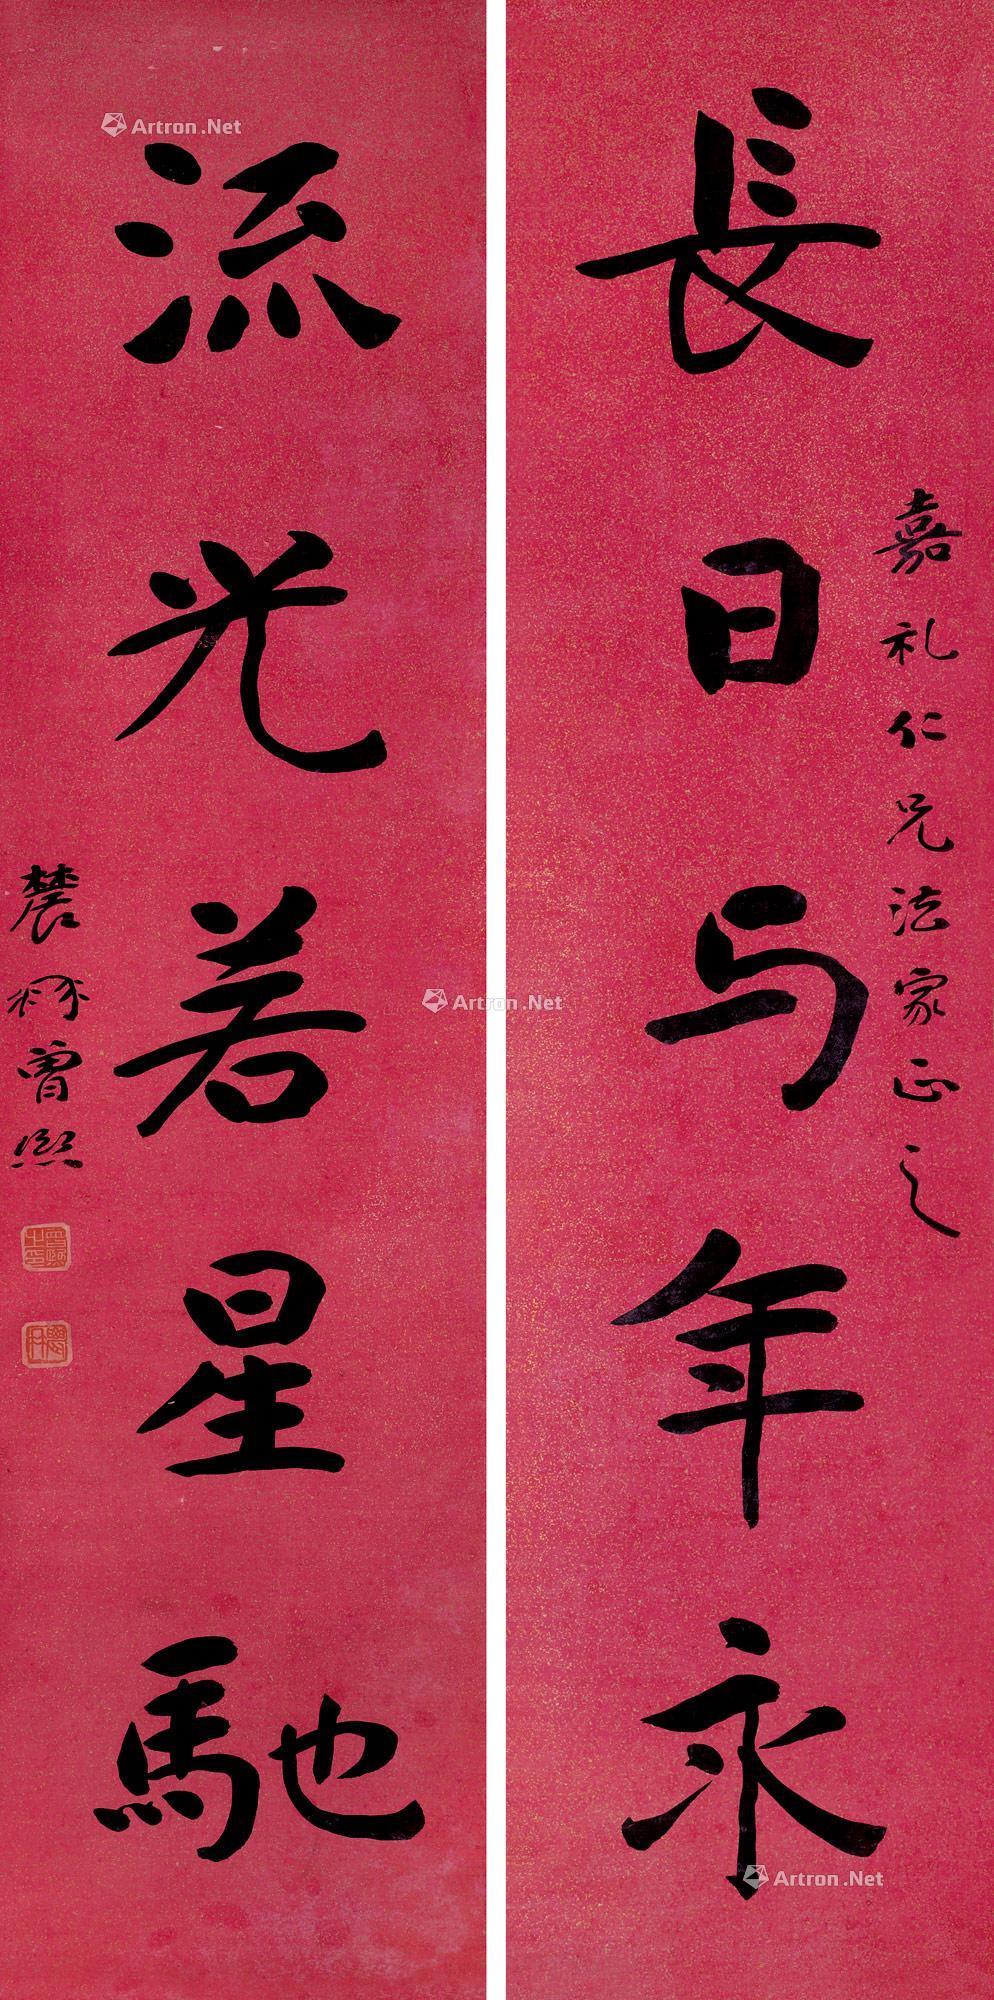 嘉礼仁兄法家正之
長日与年永
流光若星馳
農髯曾熙
Artron.Net
Artron.Net
Artron.Net